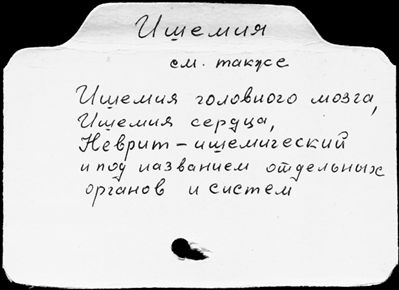 Ишемия
см. также
Ишемия головного мозга,
Ишемия сердца,
Неврит - ишемический
и под названием отдельных
органов и систем